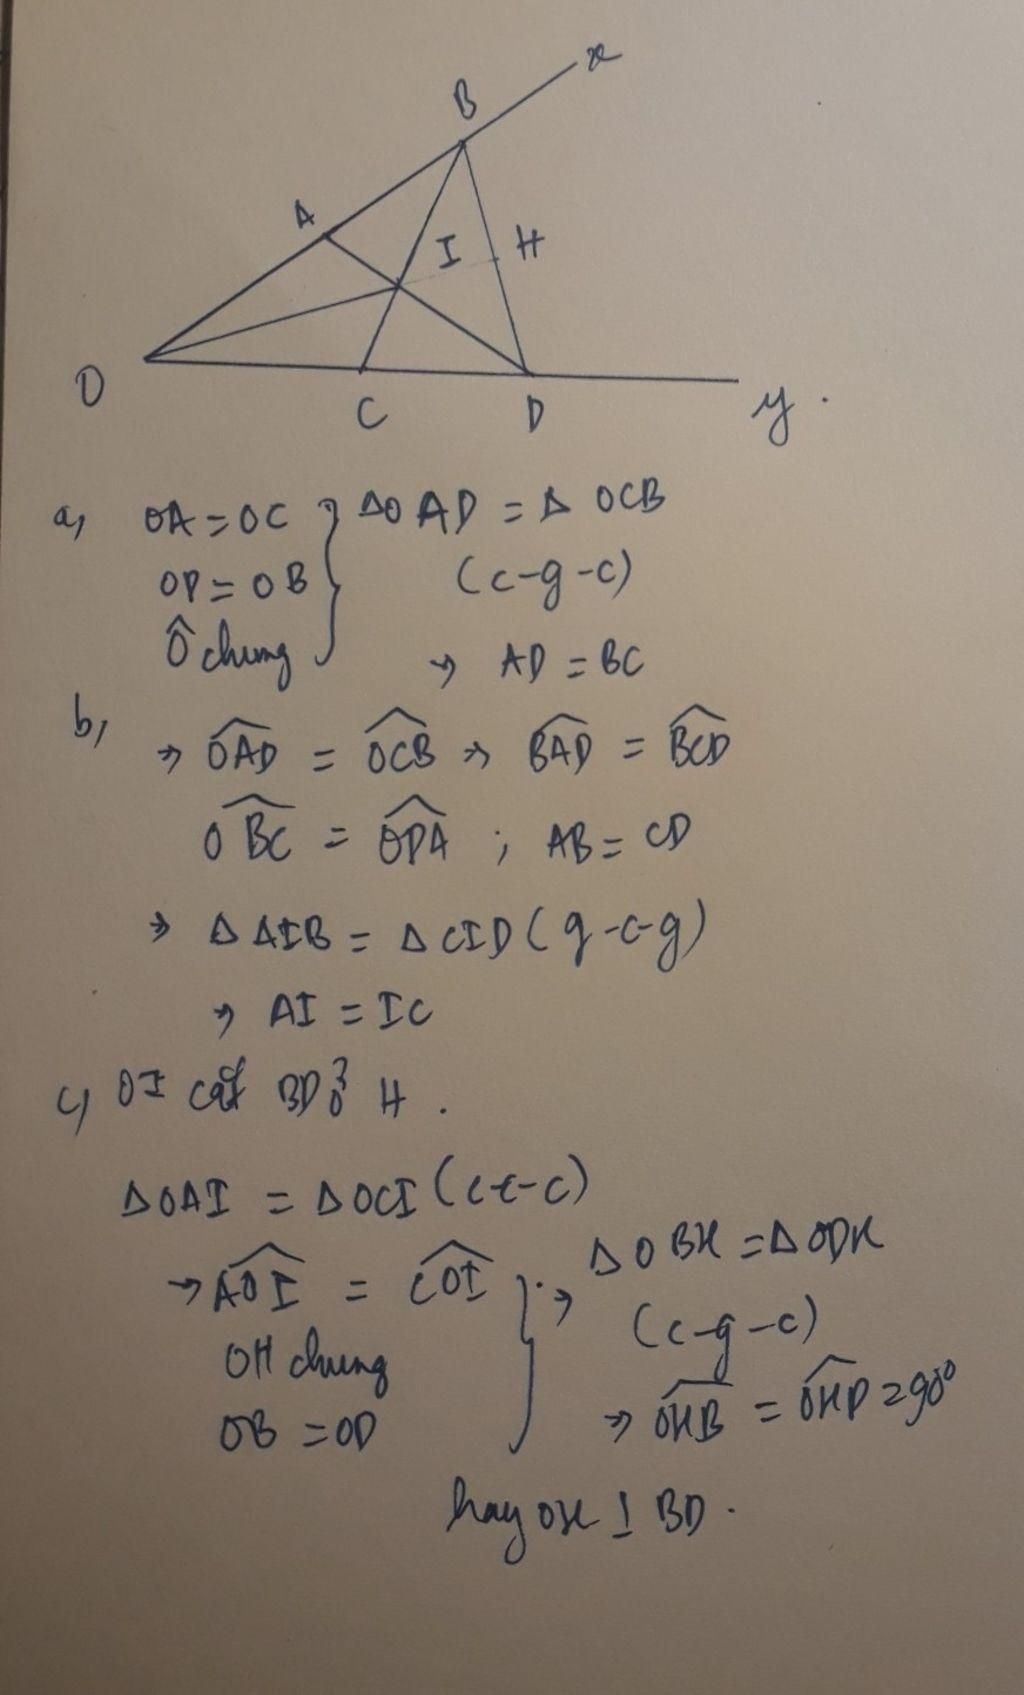 x
B
A
I H
O
C D y.
a, OA = OC } ΔOAD = Δ OCB
OD = OB (c-g-c)
Ô chung → AD = BC
b,
⇒ \widehat{OAD} = \widehat{OCB} ⇒ \widehat{BAD} = \widehat{BCD}
\widehat{OBC} = \widehat{ODA} ; AB = CD
⇒ Δ AIB = Δ CID (g-c-g)
⇒ AI = IC
c, OI cắt BD ở H.
ΔOAI = ΔOCI (c-c-c)
→ \widehat{AOI} = \widehat{COI} } ⇒ ΔOBH = ΔODH
OH chung (c-g-c)
OB = OD ⇒ \widehat{OHB} = \widehat{OHD} = 90°
hay OH ⊥ BD.